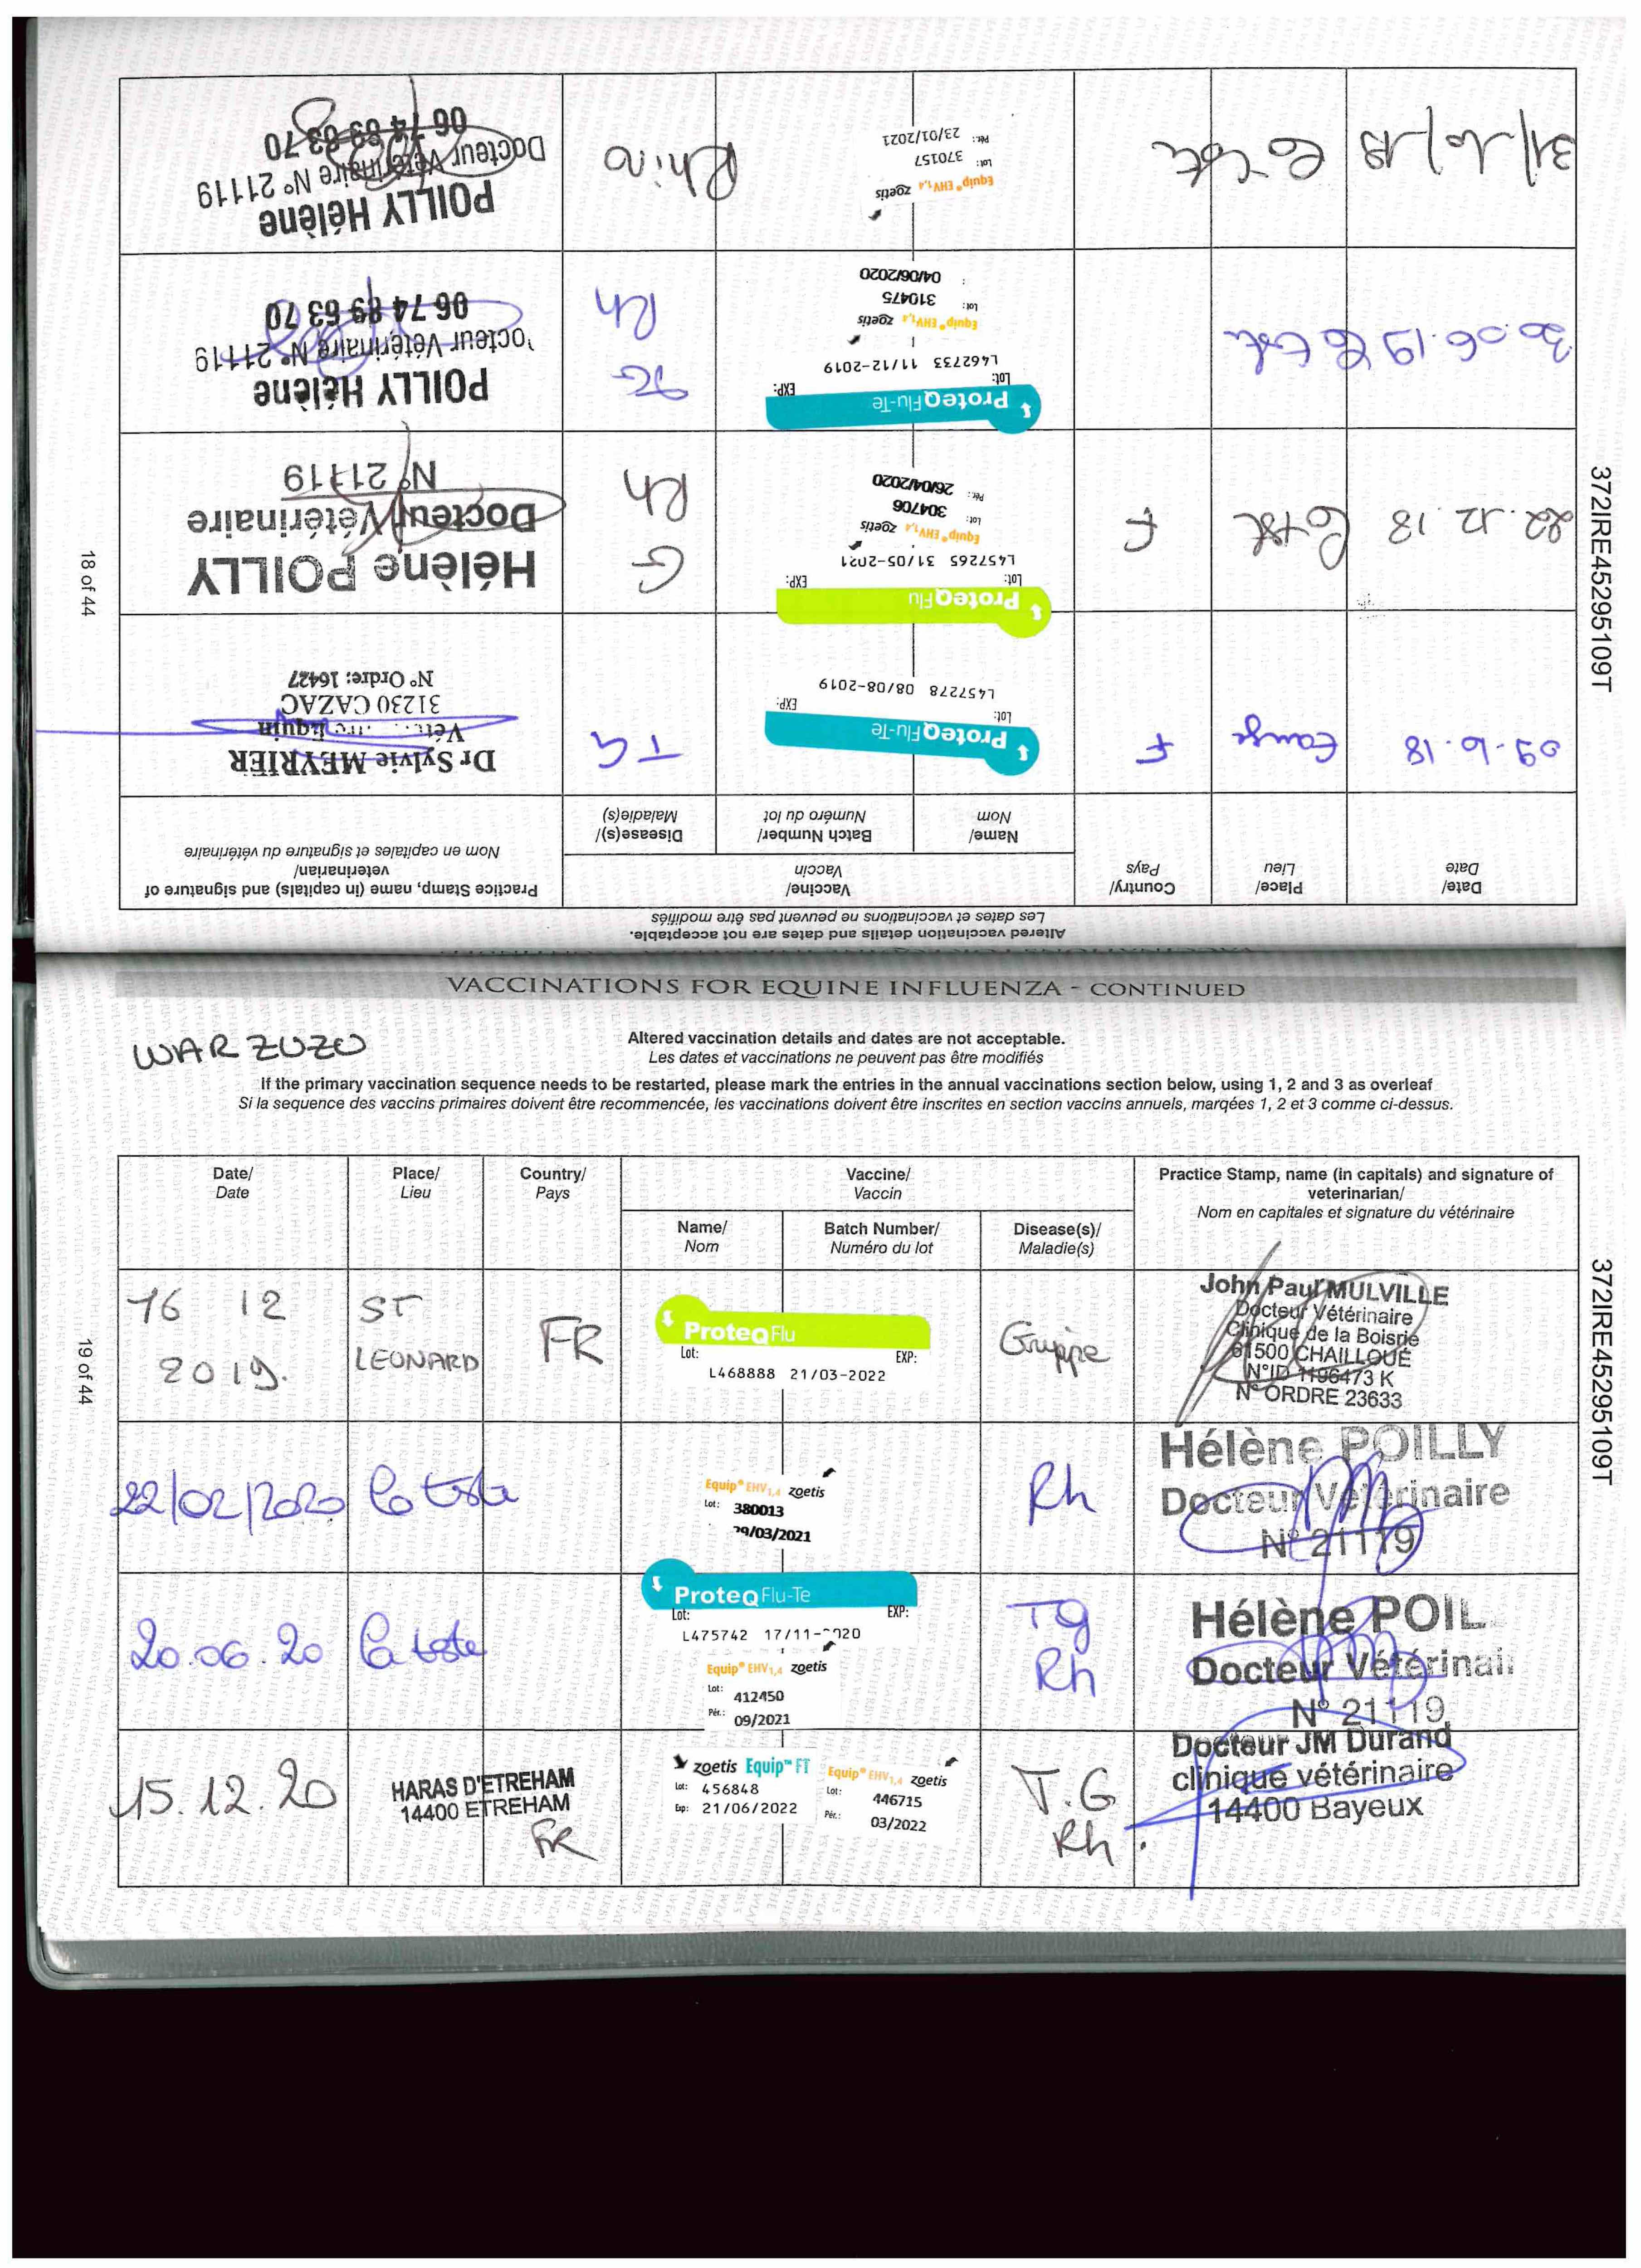 Altered vaccination details and dates are not acceptable.
Les dates et vaccinations ne peuvent pas être modifiés
Date/
Date
Place/
Lieu
Country/
Pays
Vaccine/
Vaccin
Name/
Nom
Batch Number/
Numéro du lot
Disease(s)/
Maladie(s)
Practice Stamp, name (in capitals) and signature of
veterinarian/
Nom en capitales et signature du vétérinaire
F
ProteqFlu-Te
Lot: EXP:
L457278 08/08-2019
TG
Dr Sylvie MEYRIER
31230 CAZAC
N° Ordre: 16427
22.12.18
F
ProteqFlu
Lot: EXP:
L457265 31/05-2021
Equip® EHV1,4 zoetis
Lot: 304706
Pér.: 26/04/2020
G
Rh
Hélène POILLY
Docteur Vétérinaire
N° 21119
30.06.19
ProteqFlu-Te
Lot: EXP:
L462733 11/12-2019
Equip® EHV1,4 zoetis
Lot: 310475
: 04/06/2020
TG
Rh
POILLY Hélène
octeur Vétérinaire N° 21119
06 74 89 63 70
31/10/19
Equip® EHV1,4 zoetis
Lot: 370157
Pér.: 23/01/2021
Rhino
POILLY Hélène
Docteur Vétérinaire N° 21119
06 74 89 63 70
372IRE45295109T
18 of 44
VACCINATIONS FOR EQUINE INFLUENZA - CONTINUED
WAR ZUZU
Altered vaccination details and dates are not acceptable.
Les dates et vaccinations ne peuvent pas être modifiés
If the primary vaccination sequence needs to be restarted, please mark the entries in the annual vaccinations section below, using 1, 2 and 3 as overleaf
Si la sequence des vaccins primaires doivent être recommencée, les vaccinations doivent être inscrites en section vaccins annuels, marqées 1, 2 et 3 comme ci-dessus.
Date/
Date
Place/
Lieu
Country/
Pays
Vaccine/
Vaccin
Name/
Nom
Batch Number/
Numéro du lot
Disease(s)/
Maladie(s)
Practice Stamp, name (in capitals) and signature of
veterinarian/
Nom en capitales et signature du vétérinaire
16 12
2019.
ST
LEONARD
FR
ProteqFlu
Lot: EXP:
L468888 21/03-2022
Grippe
John Paul MULVILLE
Docteur Vétérinaire
Clinique de la Boisrie
61500 CHAILLOUÉ
N°ID 1196473 K
N° ORDRE 23633
22/02/2020
La teste
Equip® EHV1,4 zoetis
Lot: 380013
29/03/2021
Rh
Hélène POILLY
Docteur Vétérinaire
N° 21119
20.06.20
La teste
ProteqFlu-Te
Lot: EXP:
L475742 17/11-2020
Equip® EHV1,4 zoetis
Lot: 412450
Pér.: 09/2021
Tg
Rh
Hélène POIL
Docteur Vétérinai
N° 21119
15.12.20
HARAS D'ETREHAM
14400 ETREHAM
FR
zoetis Equip™ FT
Lot: 456848
Exp: 21/06/2022
Equip® EHV1,4 zoetis
Lot: 446715
Pér.: 03/2022
T.G
Rh.
Docteur JM Durand
clinique vétérinaire
14400 Bayeux
372IRE45295109T
19 of 44